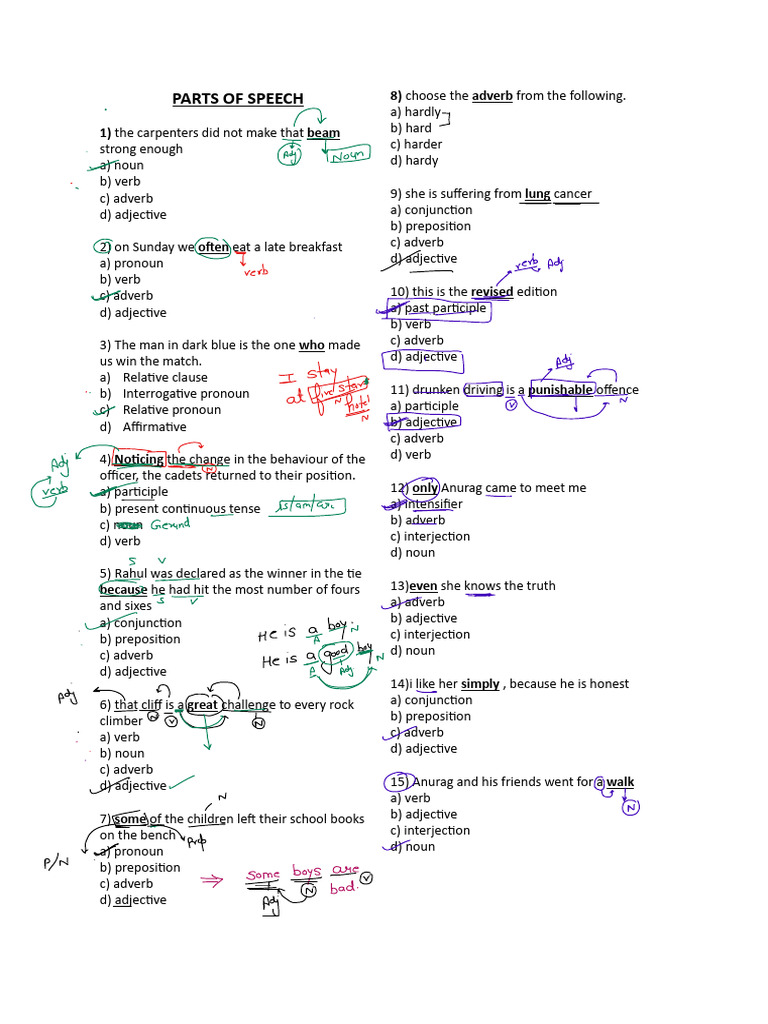 PARTS OF SPEECH
1) the carpenters did not make that beam
strong enough
Adj
Noun
a) noun
b) verb
c) adverb
d) adjective
2) on Sunday we often eat a late breakfast
verb
a) pronoun
b) verb
c) adverb
d) adjective
3) The man in dark blue is the one who made
us win the match.
a) Relative clause
b) Interrogative pronoun
c) Relative pronoun
d) Affirmative
I stay
at five stars
N
hotel
N
4) Noticing the change in the behaviour of the
Adj
N
verb
officer, the cadets returned to their position.
a) participle
b) present continuous tense
is/am/are
c) noun Gerund
d) verb
S V
5) Rahul was declared as the winner in the tie
because he had hit the most number of fours
S V
and sixes
a) conjunction
b) preposition
c) adverb
d) adjective
He is a boy. N
A
He is a good boy N
A Adj
Adj
6) that cliff is a great challenge to every rock
N V N
climber
a) verb
b) noun
c) adverb
d) adjective
N
7) some of the children left their school books
on the bench
Prep
P/N
a) pronoun
b) preposition
c) adverb
d) adjective
some boys are
bad.
N V
Adj
8) choose the adverb from the following.
a) hardly
b) hard
c) harder
d) hardy
9) she is suffering from lung cancer
a) conjunction
b) preposition
c) adverb
d) adjective
verb Adj
10) this is the revised edition
a) past participle
b) verb
c) adverb
d) adjective
Adj
11) drunken driving is a punishable offence
V N
a) participle
b) adjective
c) adverb
d) verb
12) only Anurag came to meet me
a) intensifier
b) adverb
c) interjection
d) noun
13)even she knows the truth
a) adverb
b) adjective
c) interjection
d) noun
14)i like her simply , because he is honest
a) conjunction
b) preposition
c) adverb
d) adjective
15) Anurag and his friends went for a walk
N
a) verb
b) adjective
c) interjection
d) noun